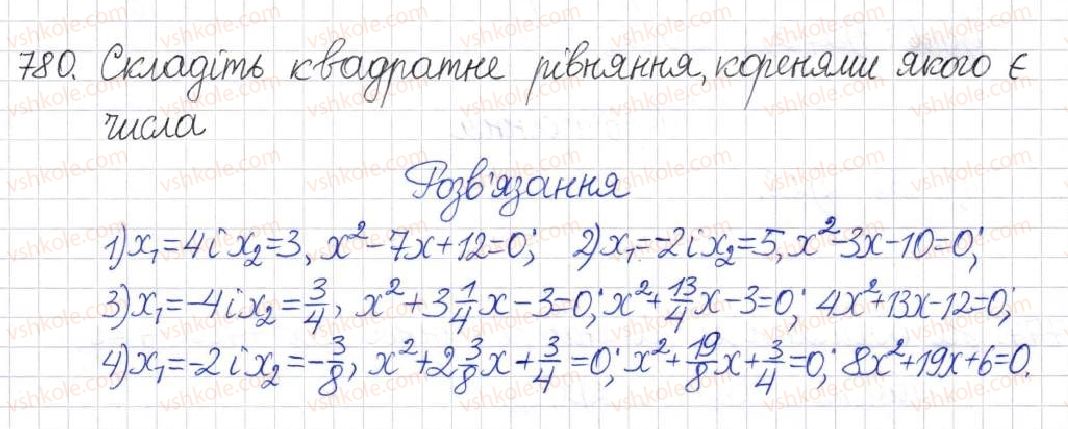 780. Складіть квадратне рівняння, коренями якого є
числа
Розв'язання
1) x₁ = 4 і x₂ = 3, x² - 7x + 12 = 0; 2) x₁ = -2 і x₂ = 5, x² - 3x - 10 = 0;
3) x₁ = -4 і x₂ = 3/4, x² + 3 1/4 x - 3 = 0; x² + 13/4 x - 3 = 0; 4x² + 13x - 12 = 0;
4) x₁ = -2 і x₂ = -3/8, x² + 2 3/8 x + 3/4 = 0; x² + 19/8 x + 3/4 = 0; 8x² + 19x + 6 = 0.